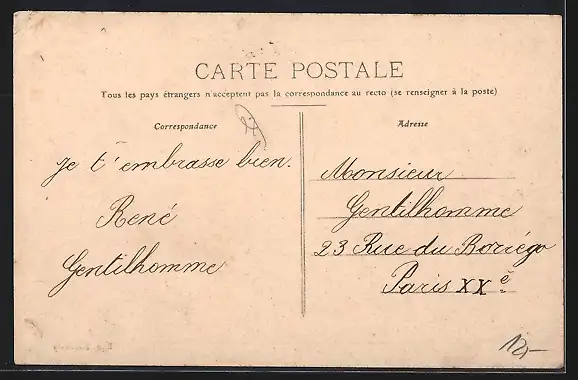 CARTE POSTALE
Tous les pays étrangers n'acceptent pas la correspondance au recto (se renseigner à la poste)
Correspondance
Adresse
Je t'embrasse bien.
René
Gentilhomme
Monsieur
Gentilhomme
23 Rue du Borrégo
Paris XXe
12,-